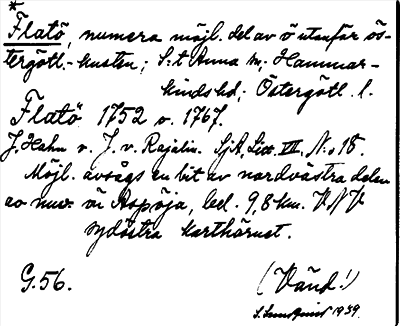 *
Flatö, numera möjl. del av ö utanför ös-
tergötl.-kusten; S:t Anna sn; Hammar-
kinds hd; Östergötl. l.
Flatö 1752 o. 1767.
J. Hahn v. J. v. Rajalin. SjA, Litt. VII, N:o 18.
Möjl. avsågs en bit av nordvästra delen
av nuv. ön Aspöja, bel. 9,8 km. V N V
sydöstra karthörnet.
G. 56.
(Vänd!)
S. Lundqvist 1939.